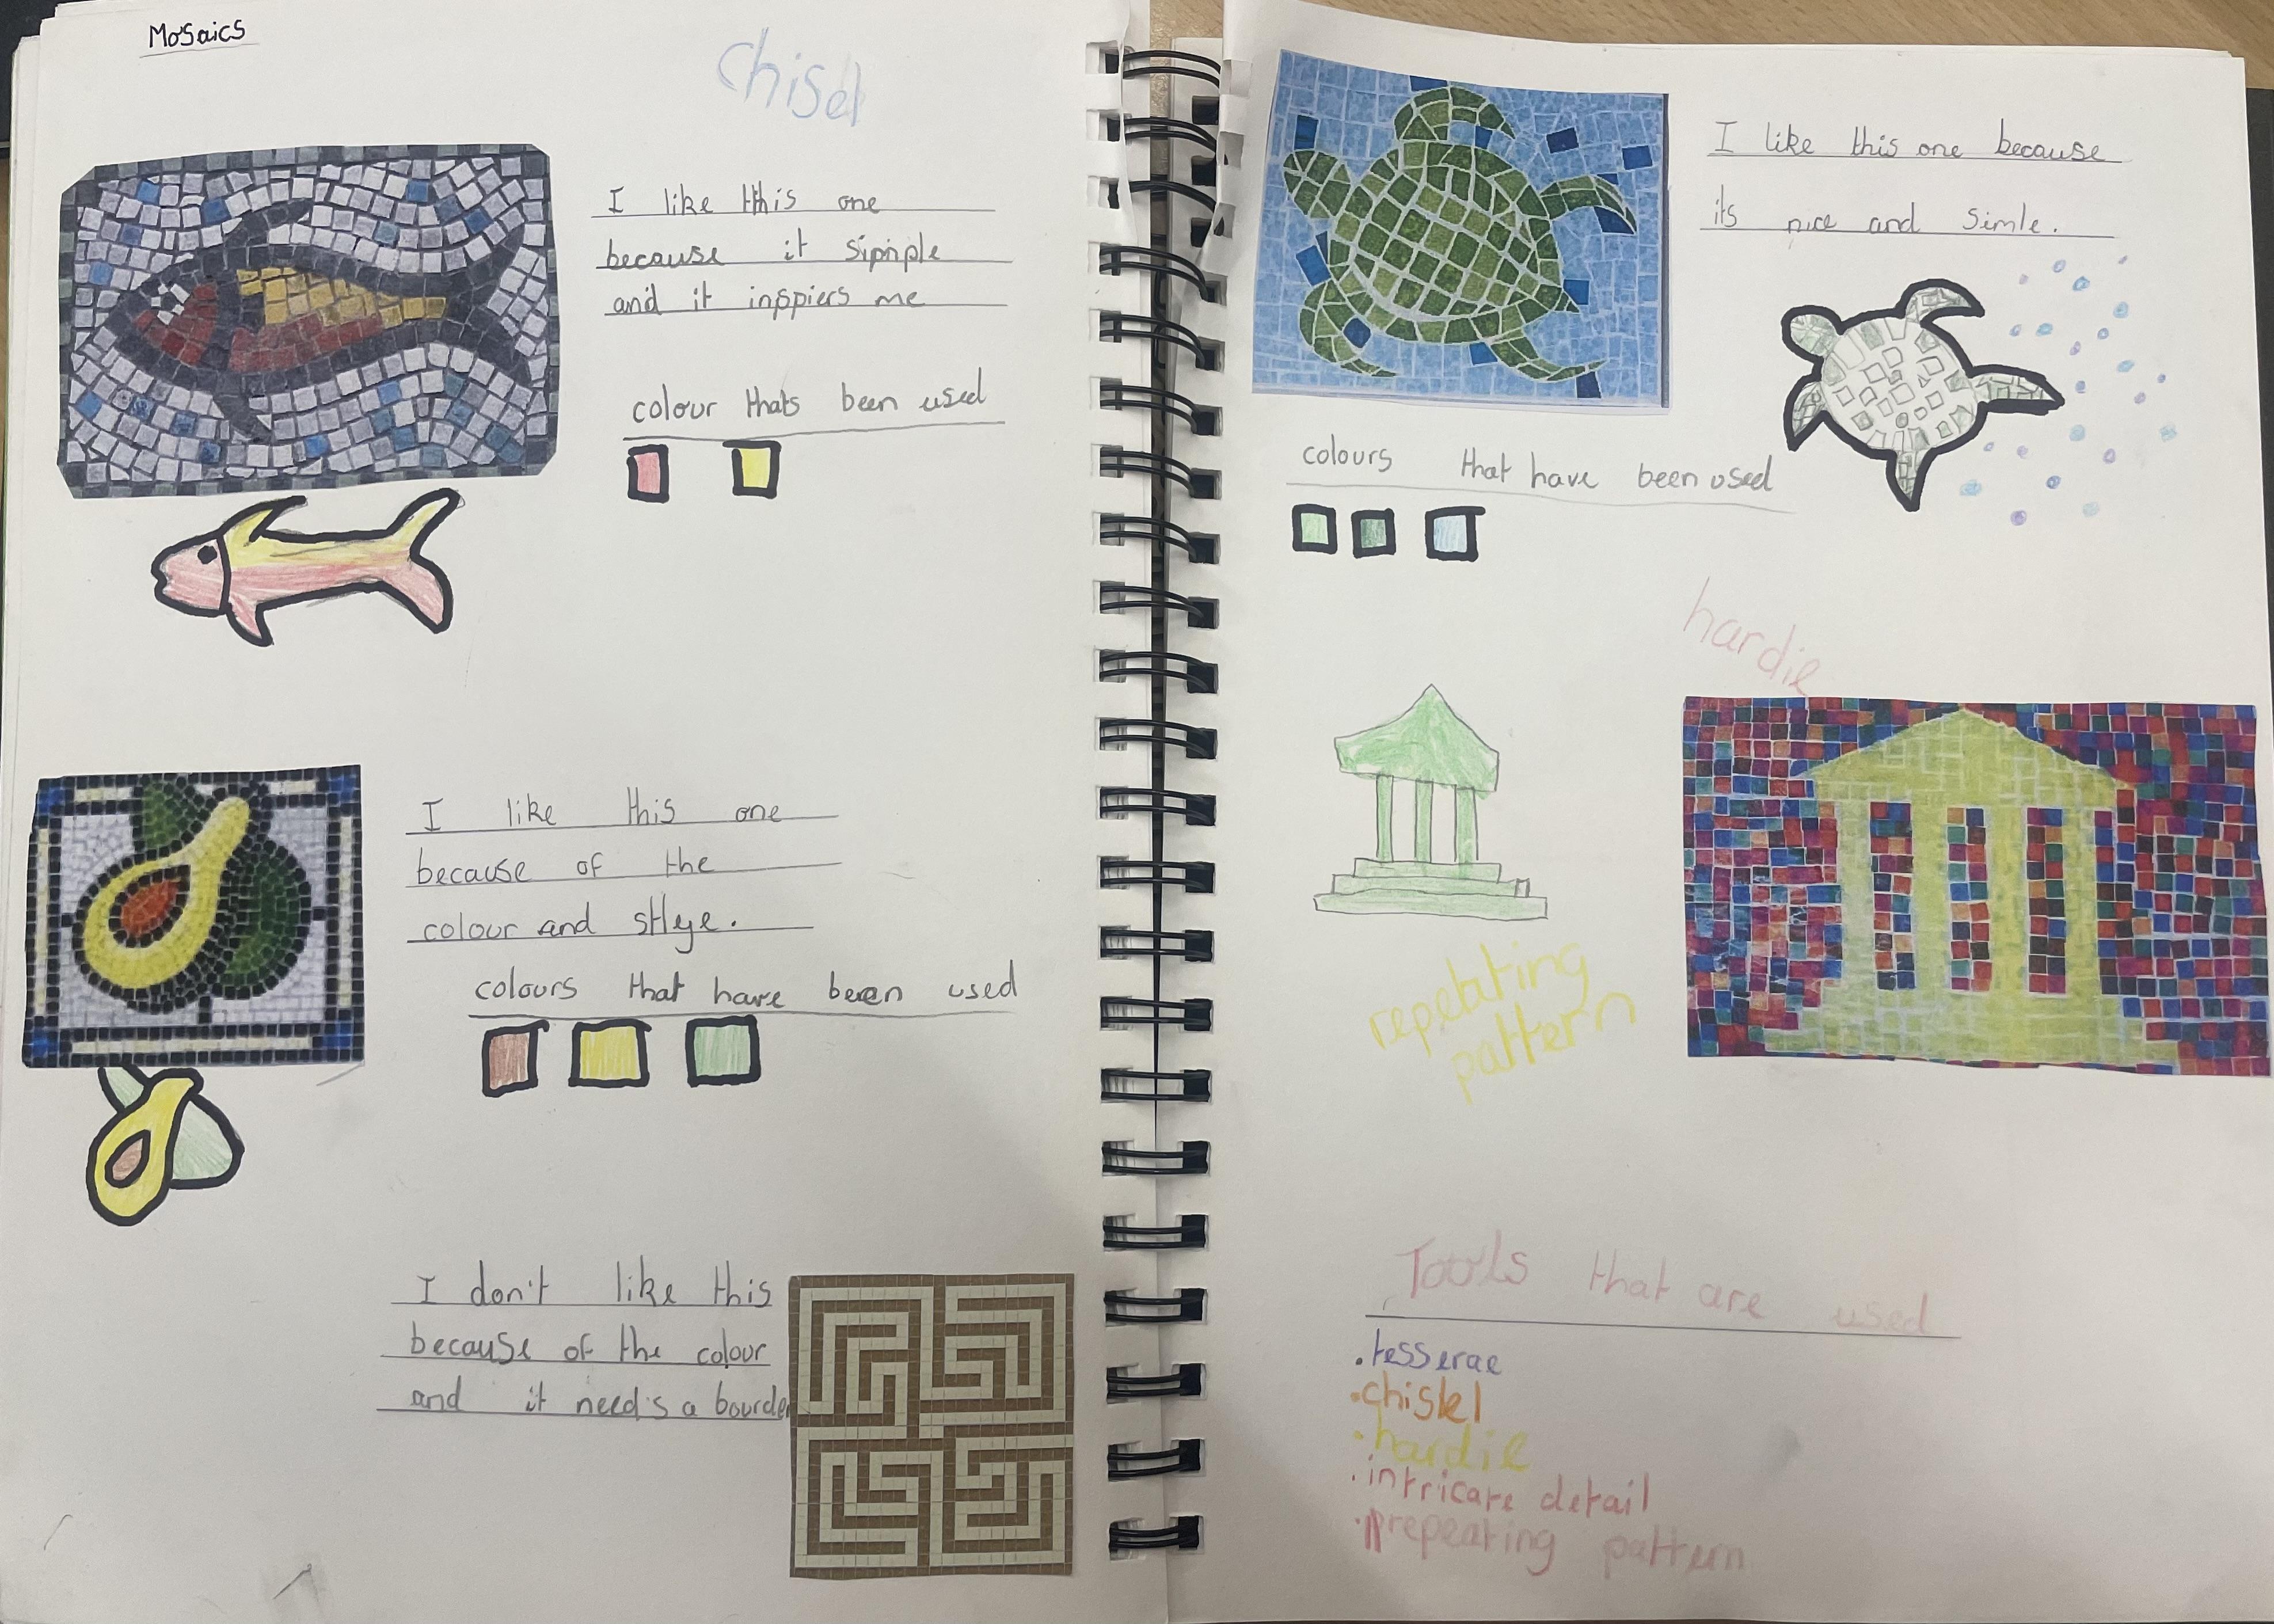 Mosaics
chisel
I like this one
because it simple
and it inspiers me
colour thats been used
I like this one
because of the
colour and stlye.
colours that have been used
I don't like this
because of the colour
and it need's a bourder
I like this one because
its nice and simle.
colours that have been used
hardie
repeating
pattern
Tools that are used
.tesserae
.chisel
.hardie
.intricate detail
.repeating pattern